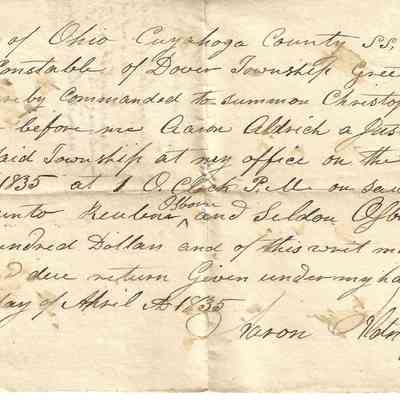 of Ohio Cuyahoga County SS,
Constable of Dover Township Gree
by Commanded to summon Christop
before me Aaron Aldrich a Jus
said Township at my office on the
1835 at 1 O. Clock P.M on sa
Osborn
unto Reubin ^ and Seldon Osb
undred Dollars and of this writ m
d due return Given under my ha
day of April AD 1835
Aaron